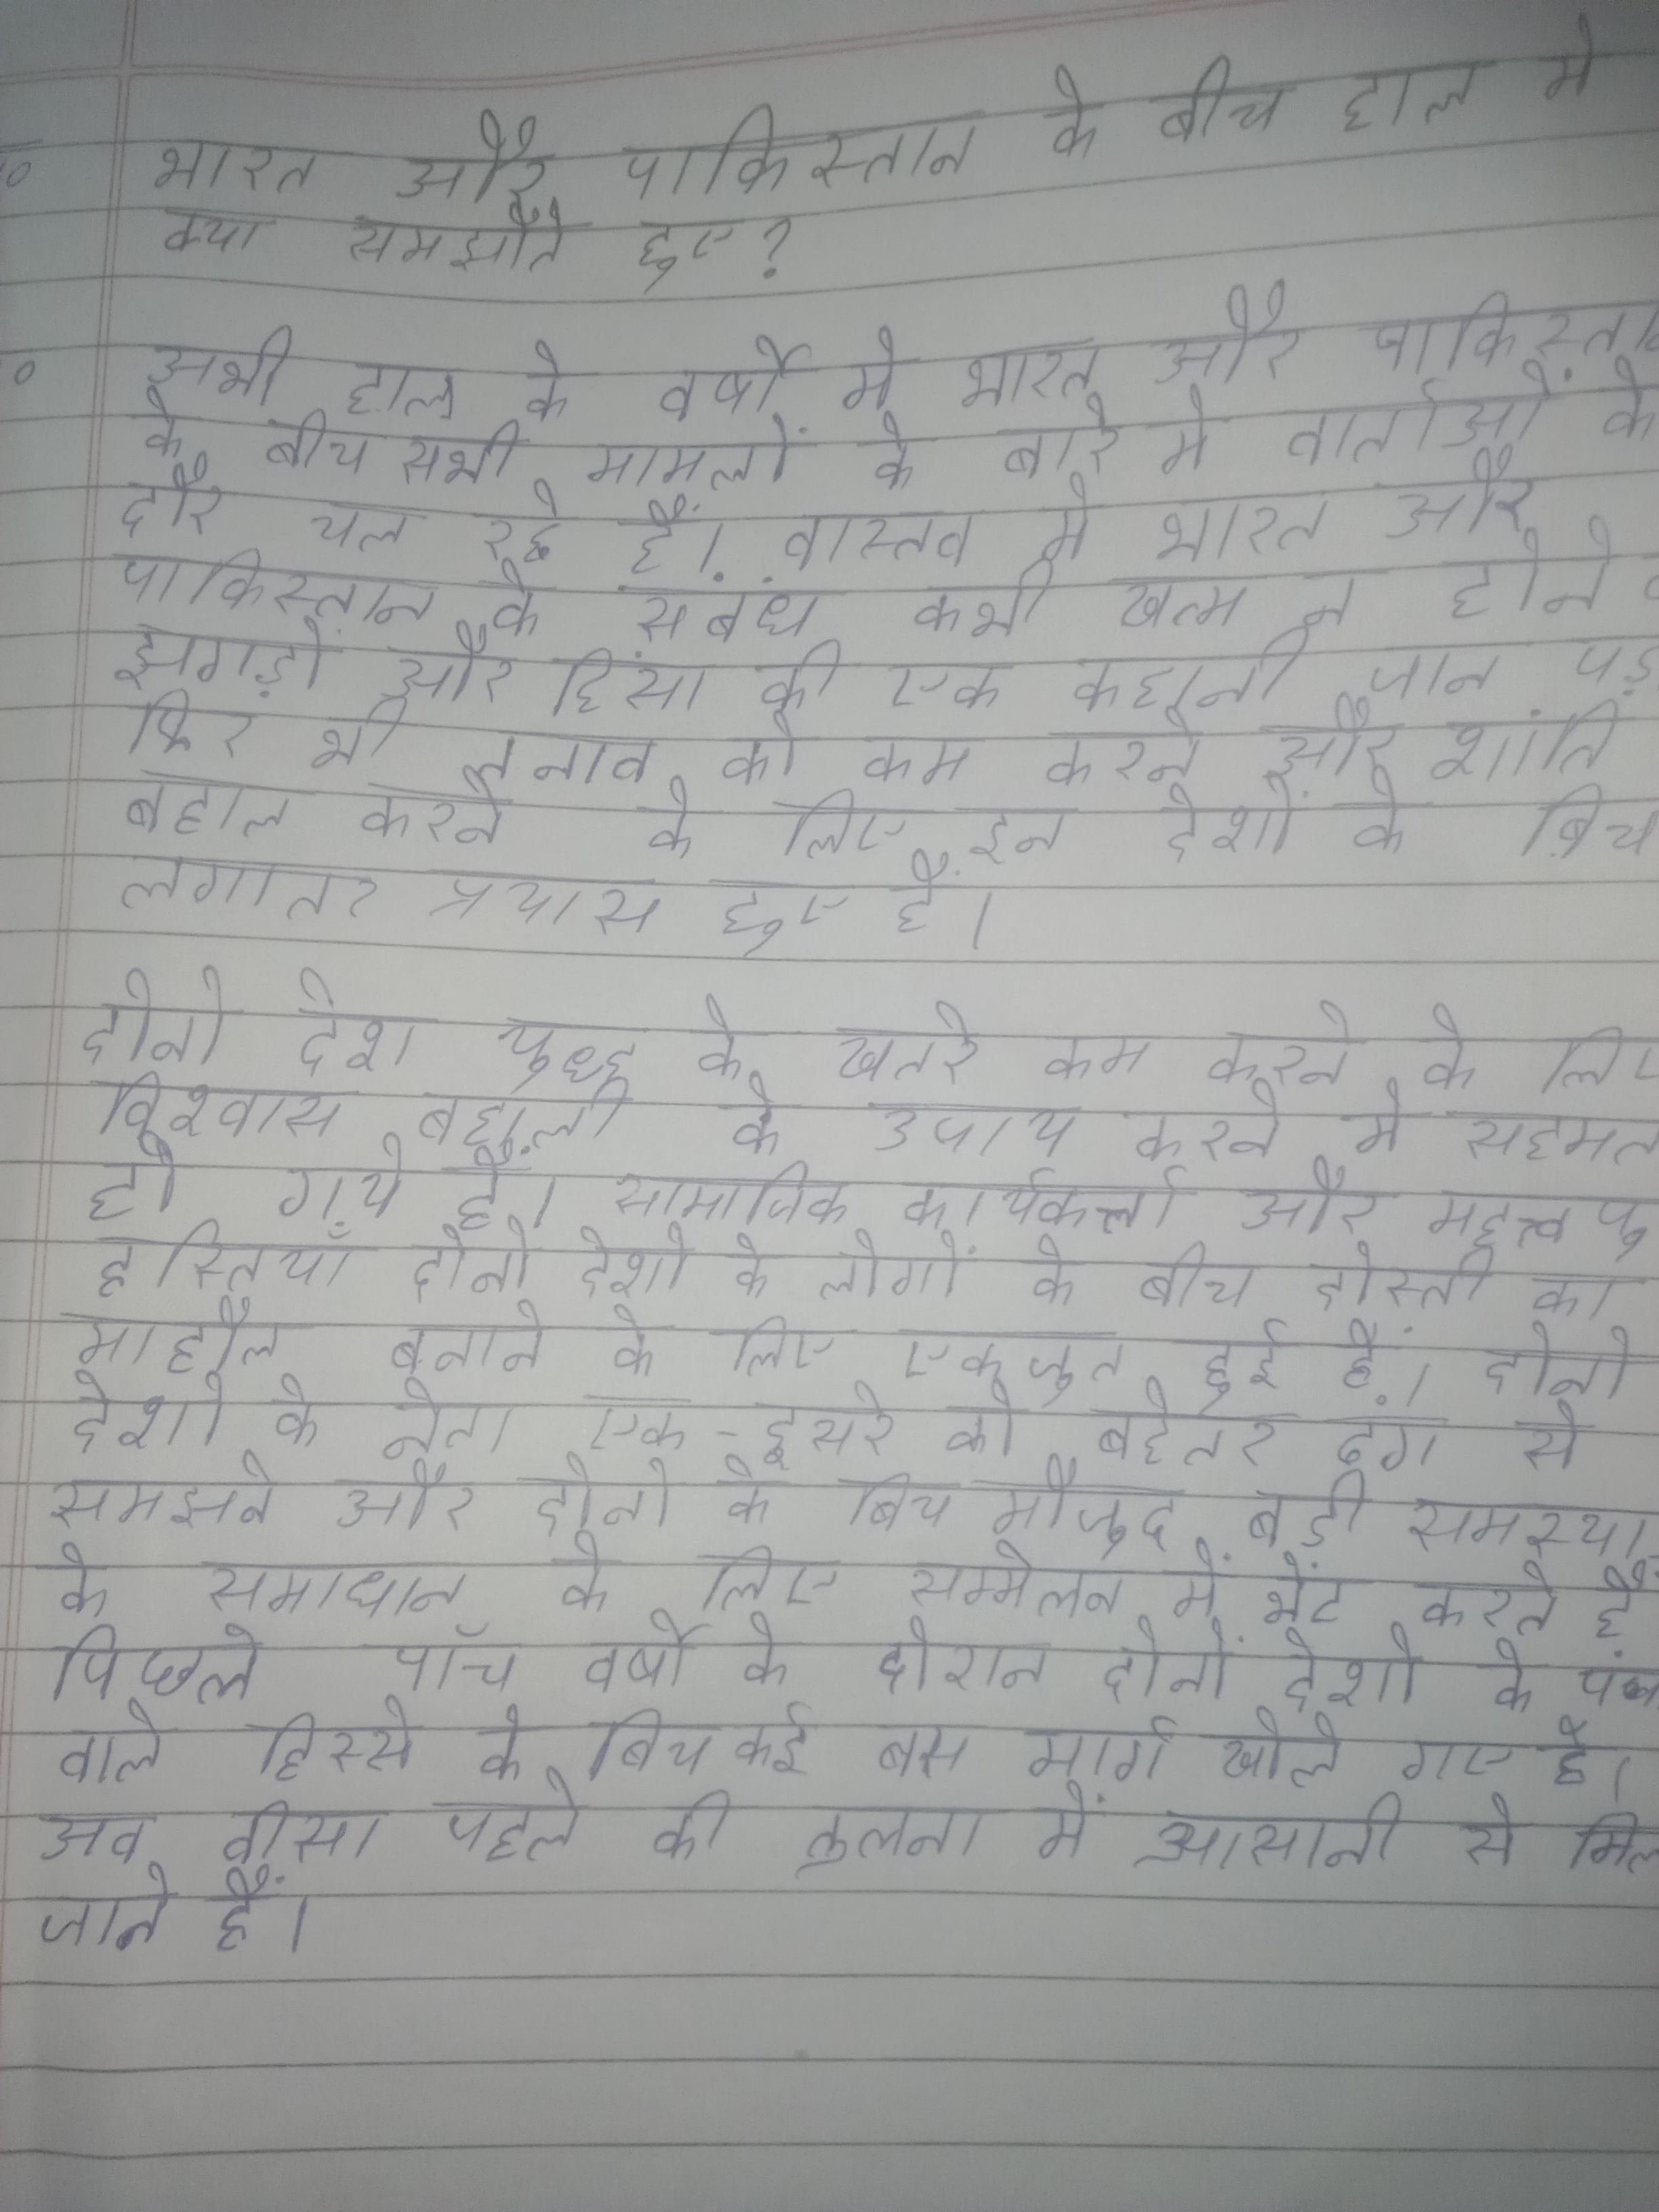 भारत और पाकिस्तान के बीच हाल मे
क्या समझौते हुए?
अभी हाल के वर्षों मे भारत और पाकिस्ता
के बीच सभी मामलों के बारे मे वार्ताओं के
दौर चल रहे हैं। वास्तव मे भारत और
पाकिस्तान के संबंध कभी खत्म न होने
झगड़ो और हिंसा की एक कहानी जान पड़
फिर भी तनाव को कम करने और शांति
बहाल करने के लिए इन देशों के बिच
लगातर प्रयास हुए हैं।
दोनो देश युध्द के खतरे कम करने के लिए
विश्वास बहाली के उपाय करने मे सहमत
हो गये हैं। सामाजिक कार्यकर्त्ता और महत्त्व पु
हस्तियाँ दोनो देशो के लोगों के बीच दोस्ती का
माहौल बनाने के लिए एकजुत हुई हैं। दोनो
देशो के नेता एक-दुसरे को बहेतर ढंग से
समझने और दोनो के बिच मौजुद बड़ी समस्या
के समाधान के लिए सम्मेलन में भेंट करते हैं
पिछले पाँच वर्षो के दोरान दोनों देशो के पंजा
वाले हिस्से के बिच कई बस मार्ग खोले गए है।
अब वीसा पहले की तुलना में आसानी से मिल
जाने हैं।